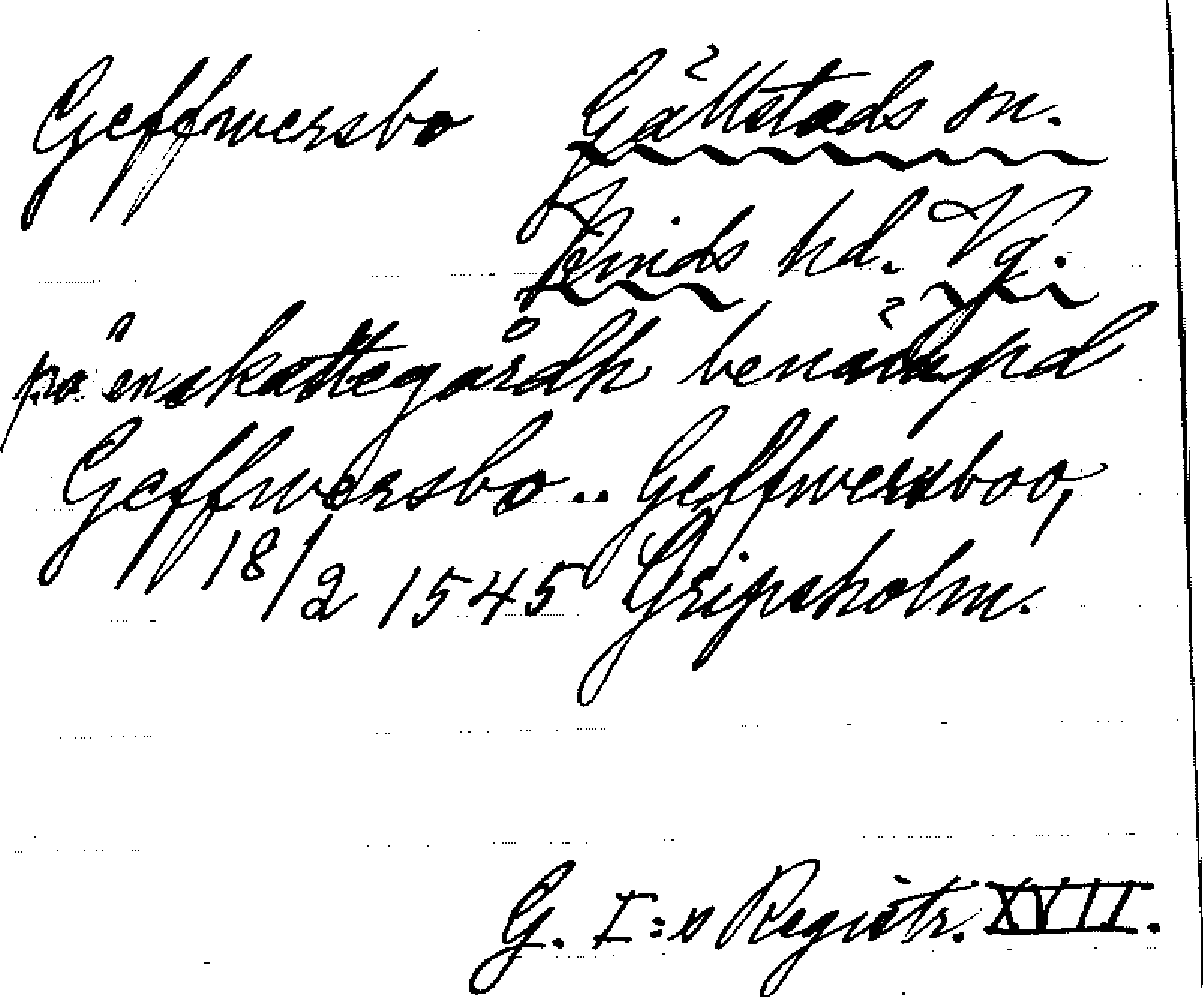 Geffwersbo Gällstads sn.
Kinds hd. Vg.
på en skattegårdh benämpd
Geffwersbo.. Geffwersboo,
18/2 1545 Gripsholm.
G. I:s Registr. XVII.